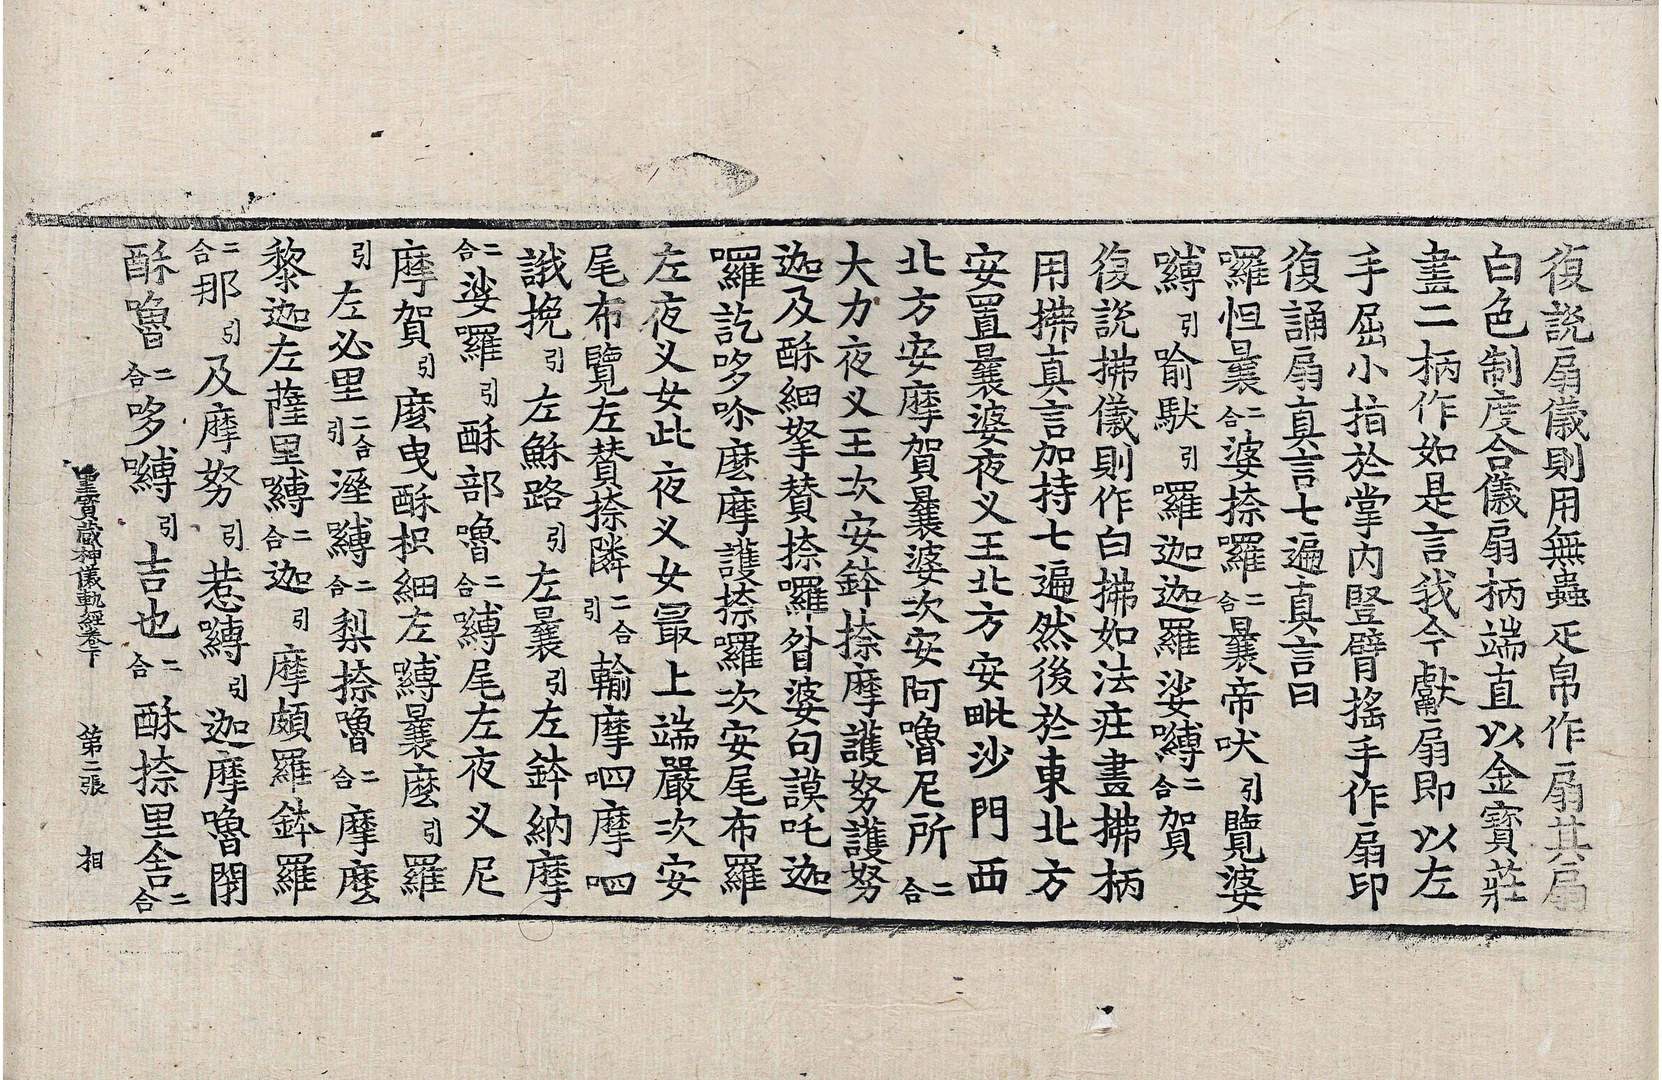 復說扇儀則用無蟲疋帛作扇其扇
白色制度合儀扇柄端直以金寶莊
畫二柄作如是言我今獻扇即以左
手屈小指於掌內豎臂搖手作扇印
復誦扇真言七遍真言曰
囉怛曩二合婆捺羅二合曩帝吠引覽婆
嚩引喻馱引囉迦迦羅娑嚩二合賀
復說拂儀則作白拂如法莊畫拂柄
用拂真言加持七遍然後於東北方
安置曩婆夜义王北方安毗沙門西
北方安摩賀曩婆次安阿嚕尼所二合
大力夜义王次安鉢捺摩護努護努
迦及酥細拏賛捺囉眥婆句謨吒迦
囉訖哆妳麽摩護捺囉次安尾布羅
左夜义女此夜义女最上端嚴次安
尾布覽左賛捺隣二合引輸摩呬摩呬
誐挽引左穌路引左曩引左鉢納摩
二合娑囉引酥部嚕二合嚩尾左夜义尼
摩賀引麽曳酥枳細左嚩曩麽引羅
引左必里二合引溼嚩二合梨捺嚕二合摩麽
黎迦左薩里嚩二合迦引摩頗羅鉢羅
二合那引及摩努引惹嚩引迦摩嚕閉
酥嚕二合哆嚩引吉也二合酥捺里舍二合
聖寶藏神儀軌經卷下　第二張　相